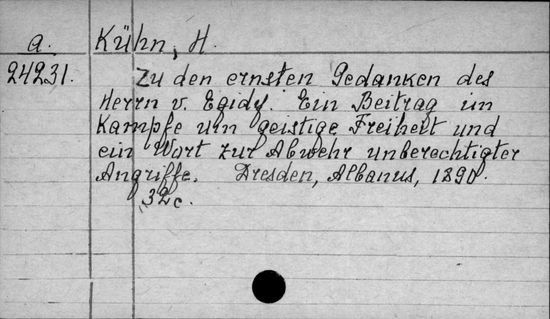 a. Kühn, H.
24231. Zu den ernsten Gedanken des
Herrn v. Egidy. Ein Beitrag im
Kampfe um geistige Freiheit und
ein Wort zur Abwehr unberechtigter
Angriffe. Dresden, Albanus, 1890.
32 c.